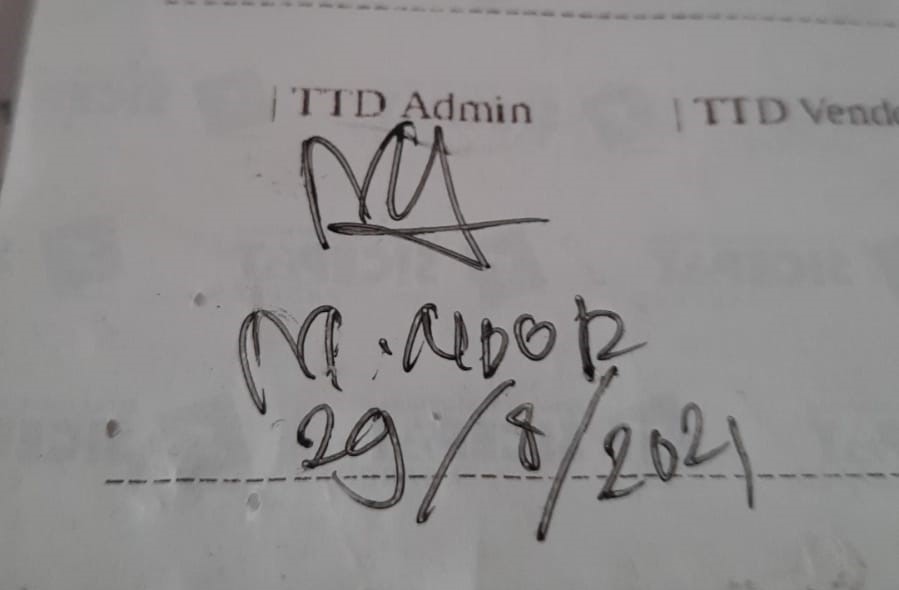 | TTD Admin | TTD Vend
M. NOOR
29/8/2021